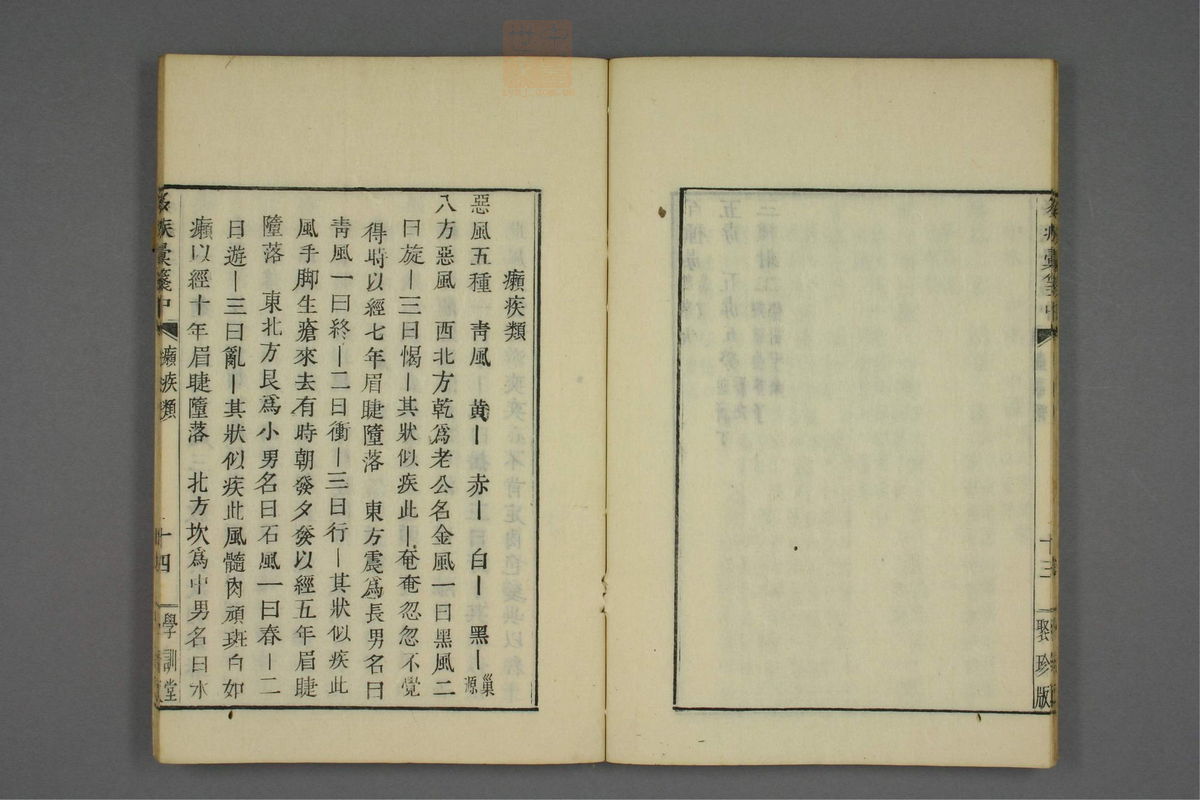 十三
聚珍版
癩疾類
惡風五種一靑風｜黄｜赤｜白｜黑｜巢源
八方惡風　西北方乾爲老公名金風一曰黑風二
曰旋｜三曰惕｜其狀似疾此｜奄奄忽忽不覺
得時以經七年眉睫墮落　東方震爲長男名曰
靑風一曰終｜二曰衝｜三曰行｜其狀似疾此
風手脚生瘡來去有時朝發夕發以經五年眉睫
墮落　東北方艮爲小男名曰石風一曰春｜二
曰遊｜三曰亂｜其狀似疾此風髓肉頑斑白如
癩以經十年眉睫墮落　北方坎爲中男名曰水
疾彙箋中　癩疾類　十四　學訓堂